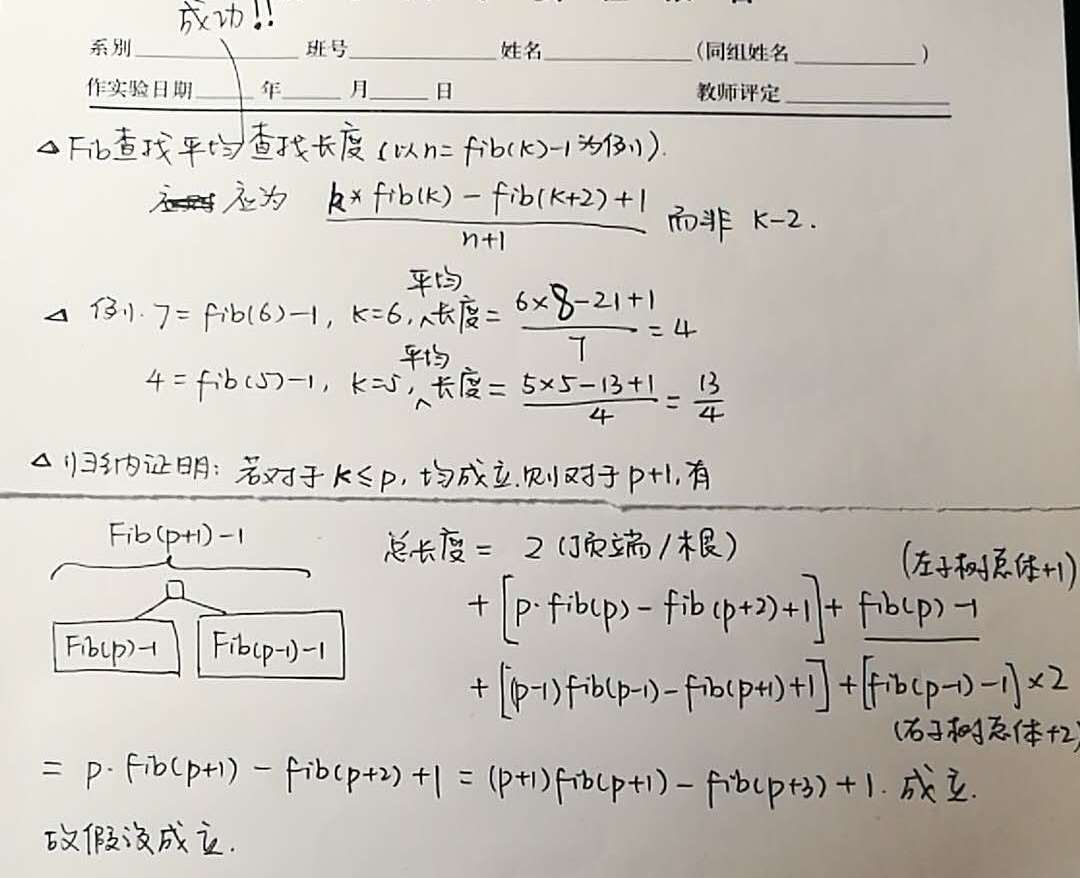 成功!!
系别 班号 姓名 (同组姓名 )
作实验日期 年 月 日 教师评定
△ Fib查找平均查找长度 (以n = fib(k)-1为例).
应为 k * fib(k) - fib(k+2) + 1 / n+1 而非 k-2.
△ 例. 7 = fib(6)-1, k=6, 平均长度 = 6×8-21+1 / 7 = 4
4 = fib(5)-1, k=5, 平均长度 = 5×5-13+1 / 4 = 13/4
△ 归纳证明: 若对于 k≤p, 均成立. 则对于 p+1, 有
Fib(p+1)-1
Fib(p)-1 Fib(p-1)-1
总长度 = 2 (顶端/根)
+ [p·fib(p) - fib(p+2)+1] + fib(p)-1 (左子树总体+1)
+ [(p-1)fib(p-1) - fib(p+1)+1] + [fib(p-1)-1]×2
(右子树总体+2)
= p·fib(p+1) - fib(p+2)+1 = (p+1)fib(p+1) - fib(p+3)+1. 成立.
故假设成立.